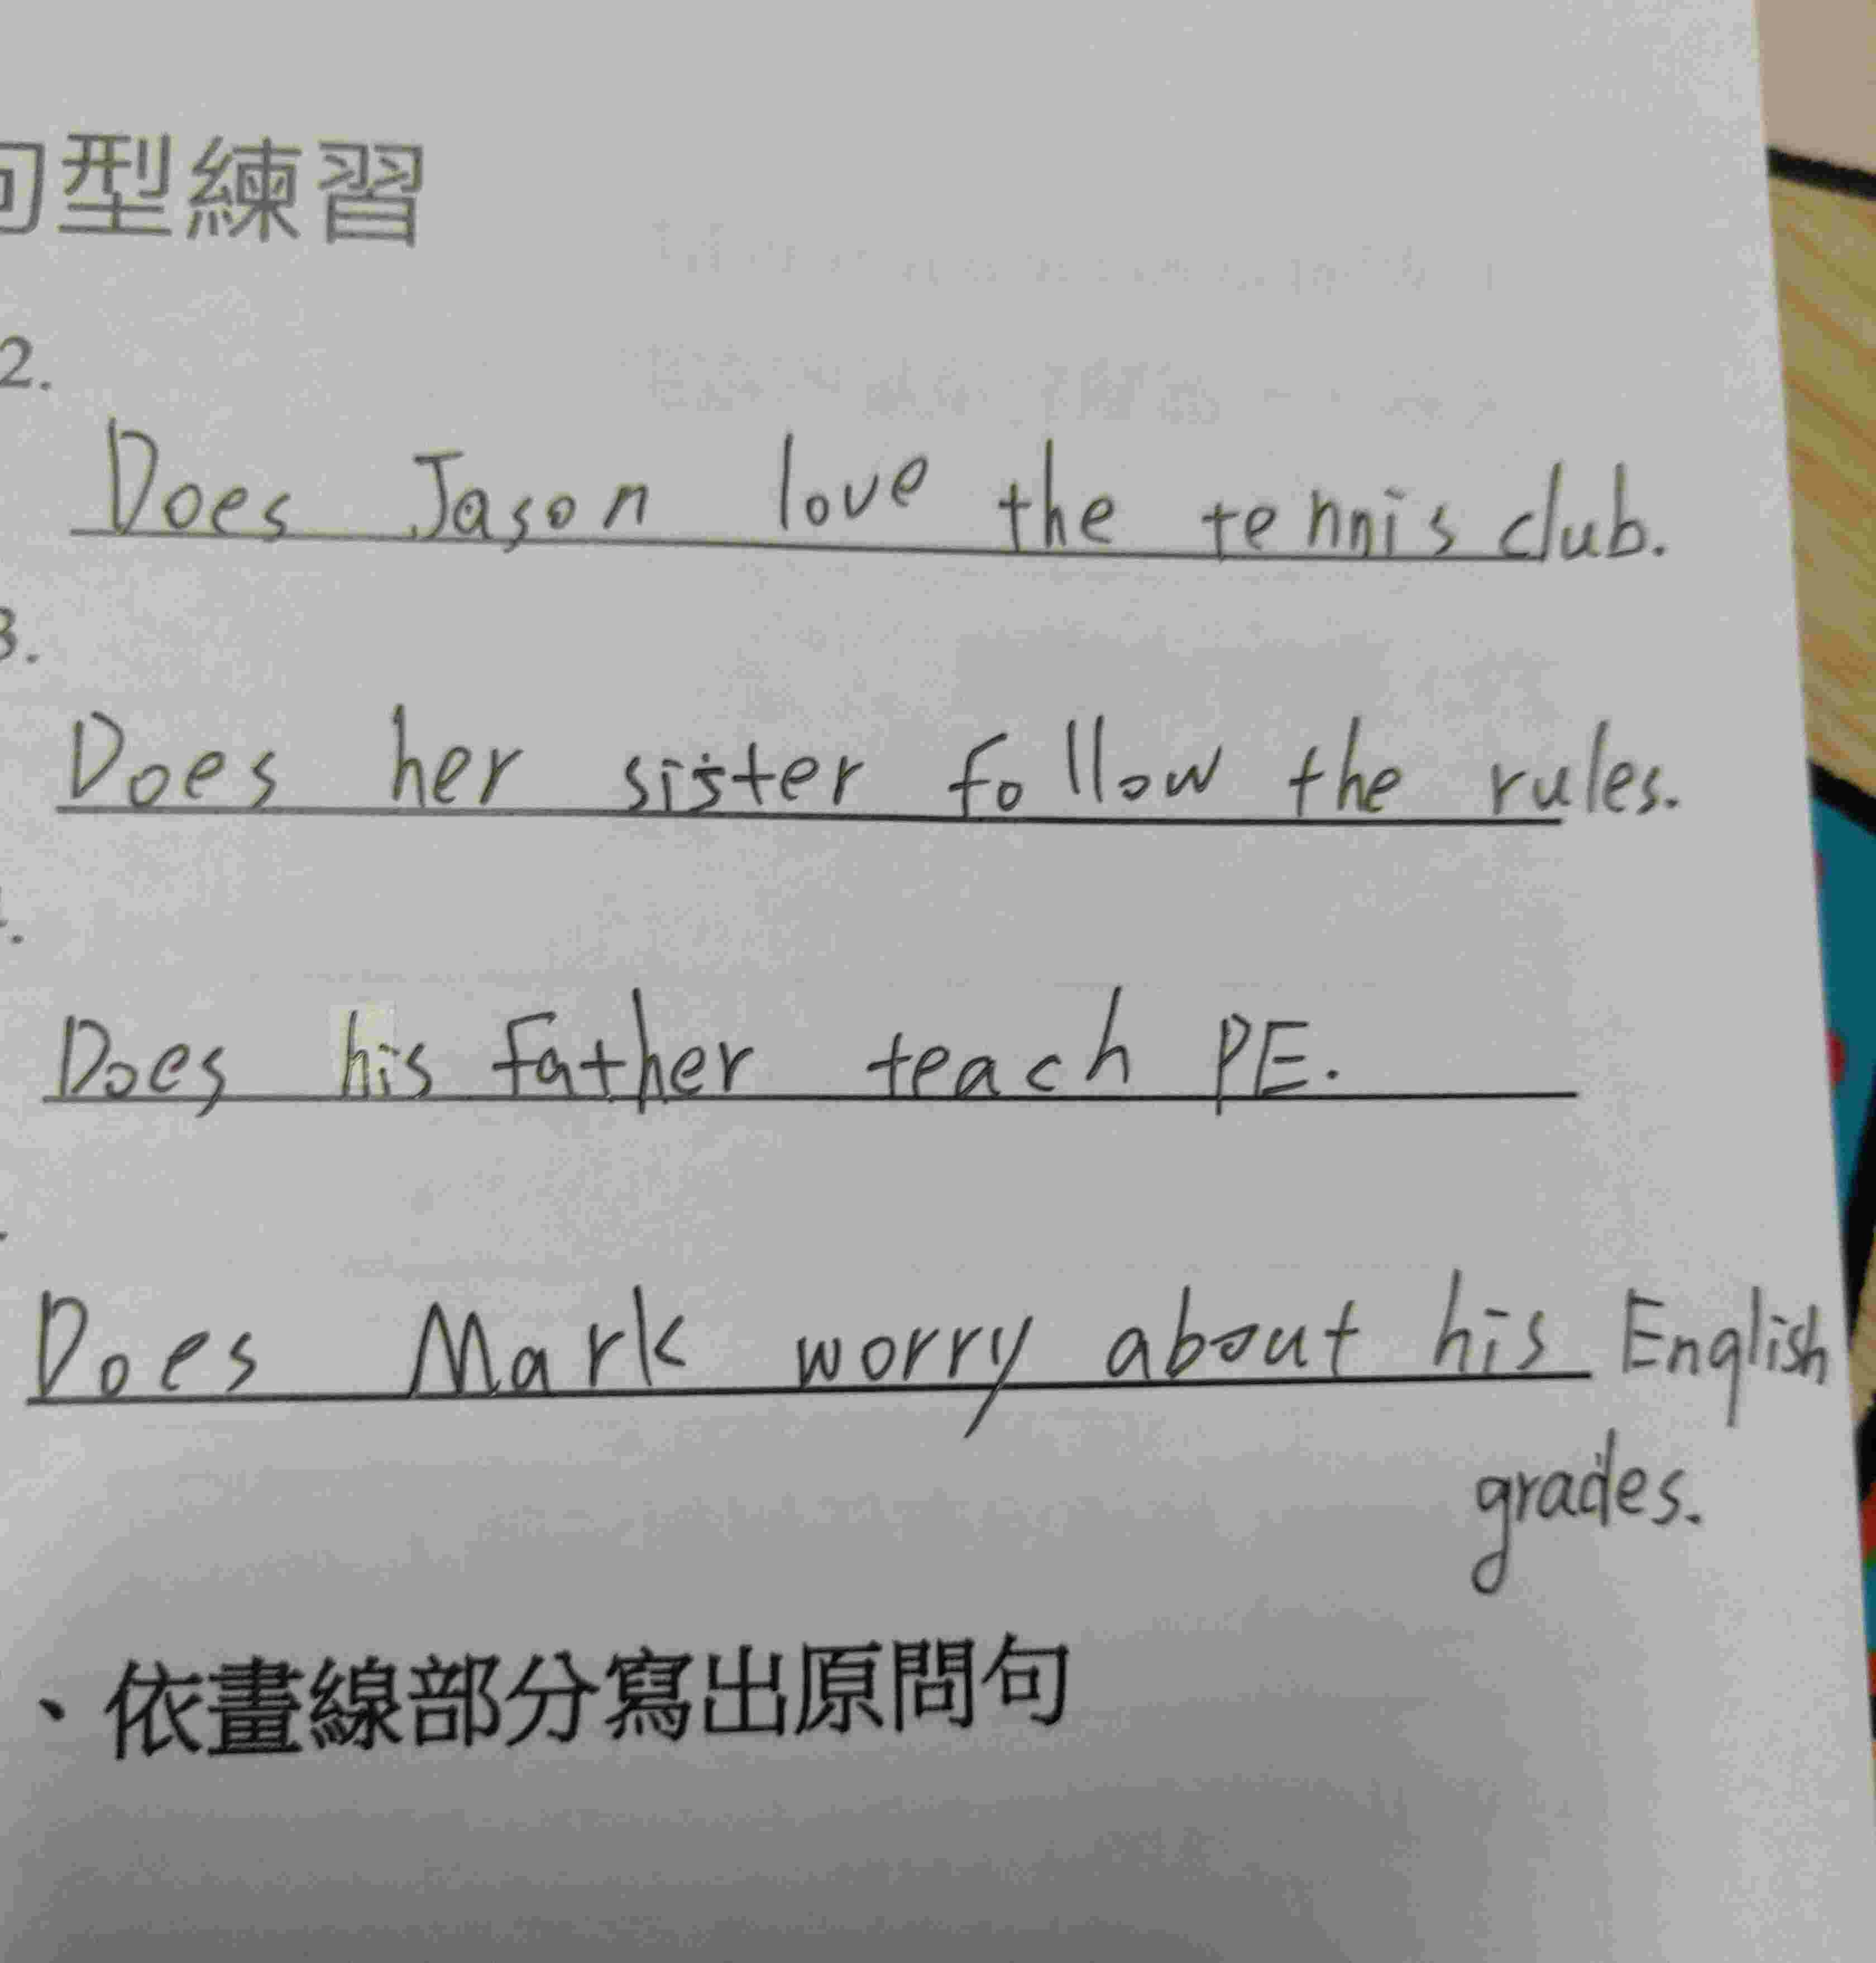 句型練習
2.
Does Jason love the tennis club.
3.
Does her sister follow the rules.
Does his father teach PE.
Does Mark worry about his English
grades.
、依畫線部分寫出原問句